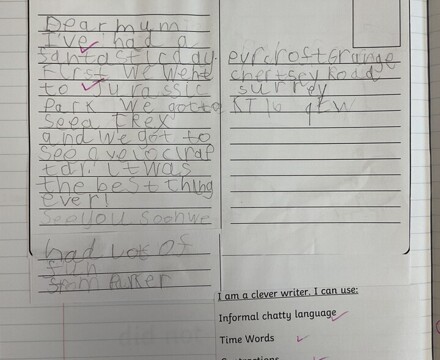 Dear mum
I've had a
santastic day.
First we went
to Jurassic
Park we gotto
see a trex
and we got to
see a velociraf
tar. It was
the best thing
ever!
See you soon we
had lot of
fun
from Parker
evrcroft Grange
chertsey Road
surrey
KT16 9EW
I am a clever writer. I can use:
Informal chatty language
Time Words